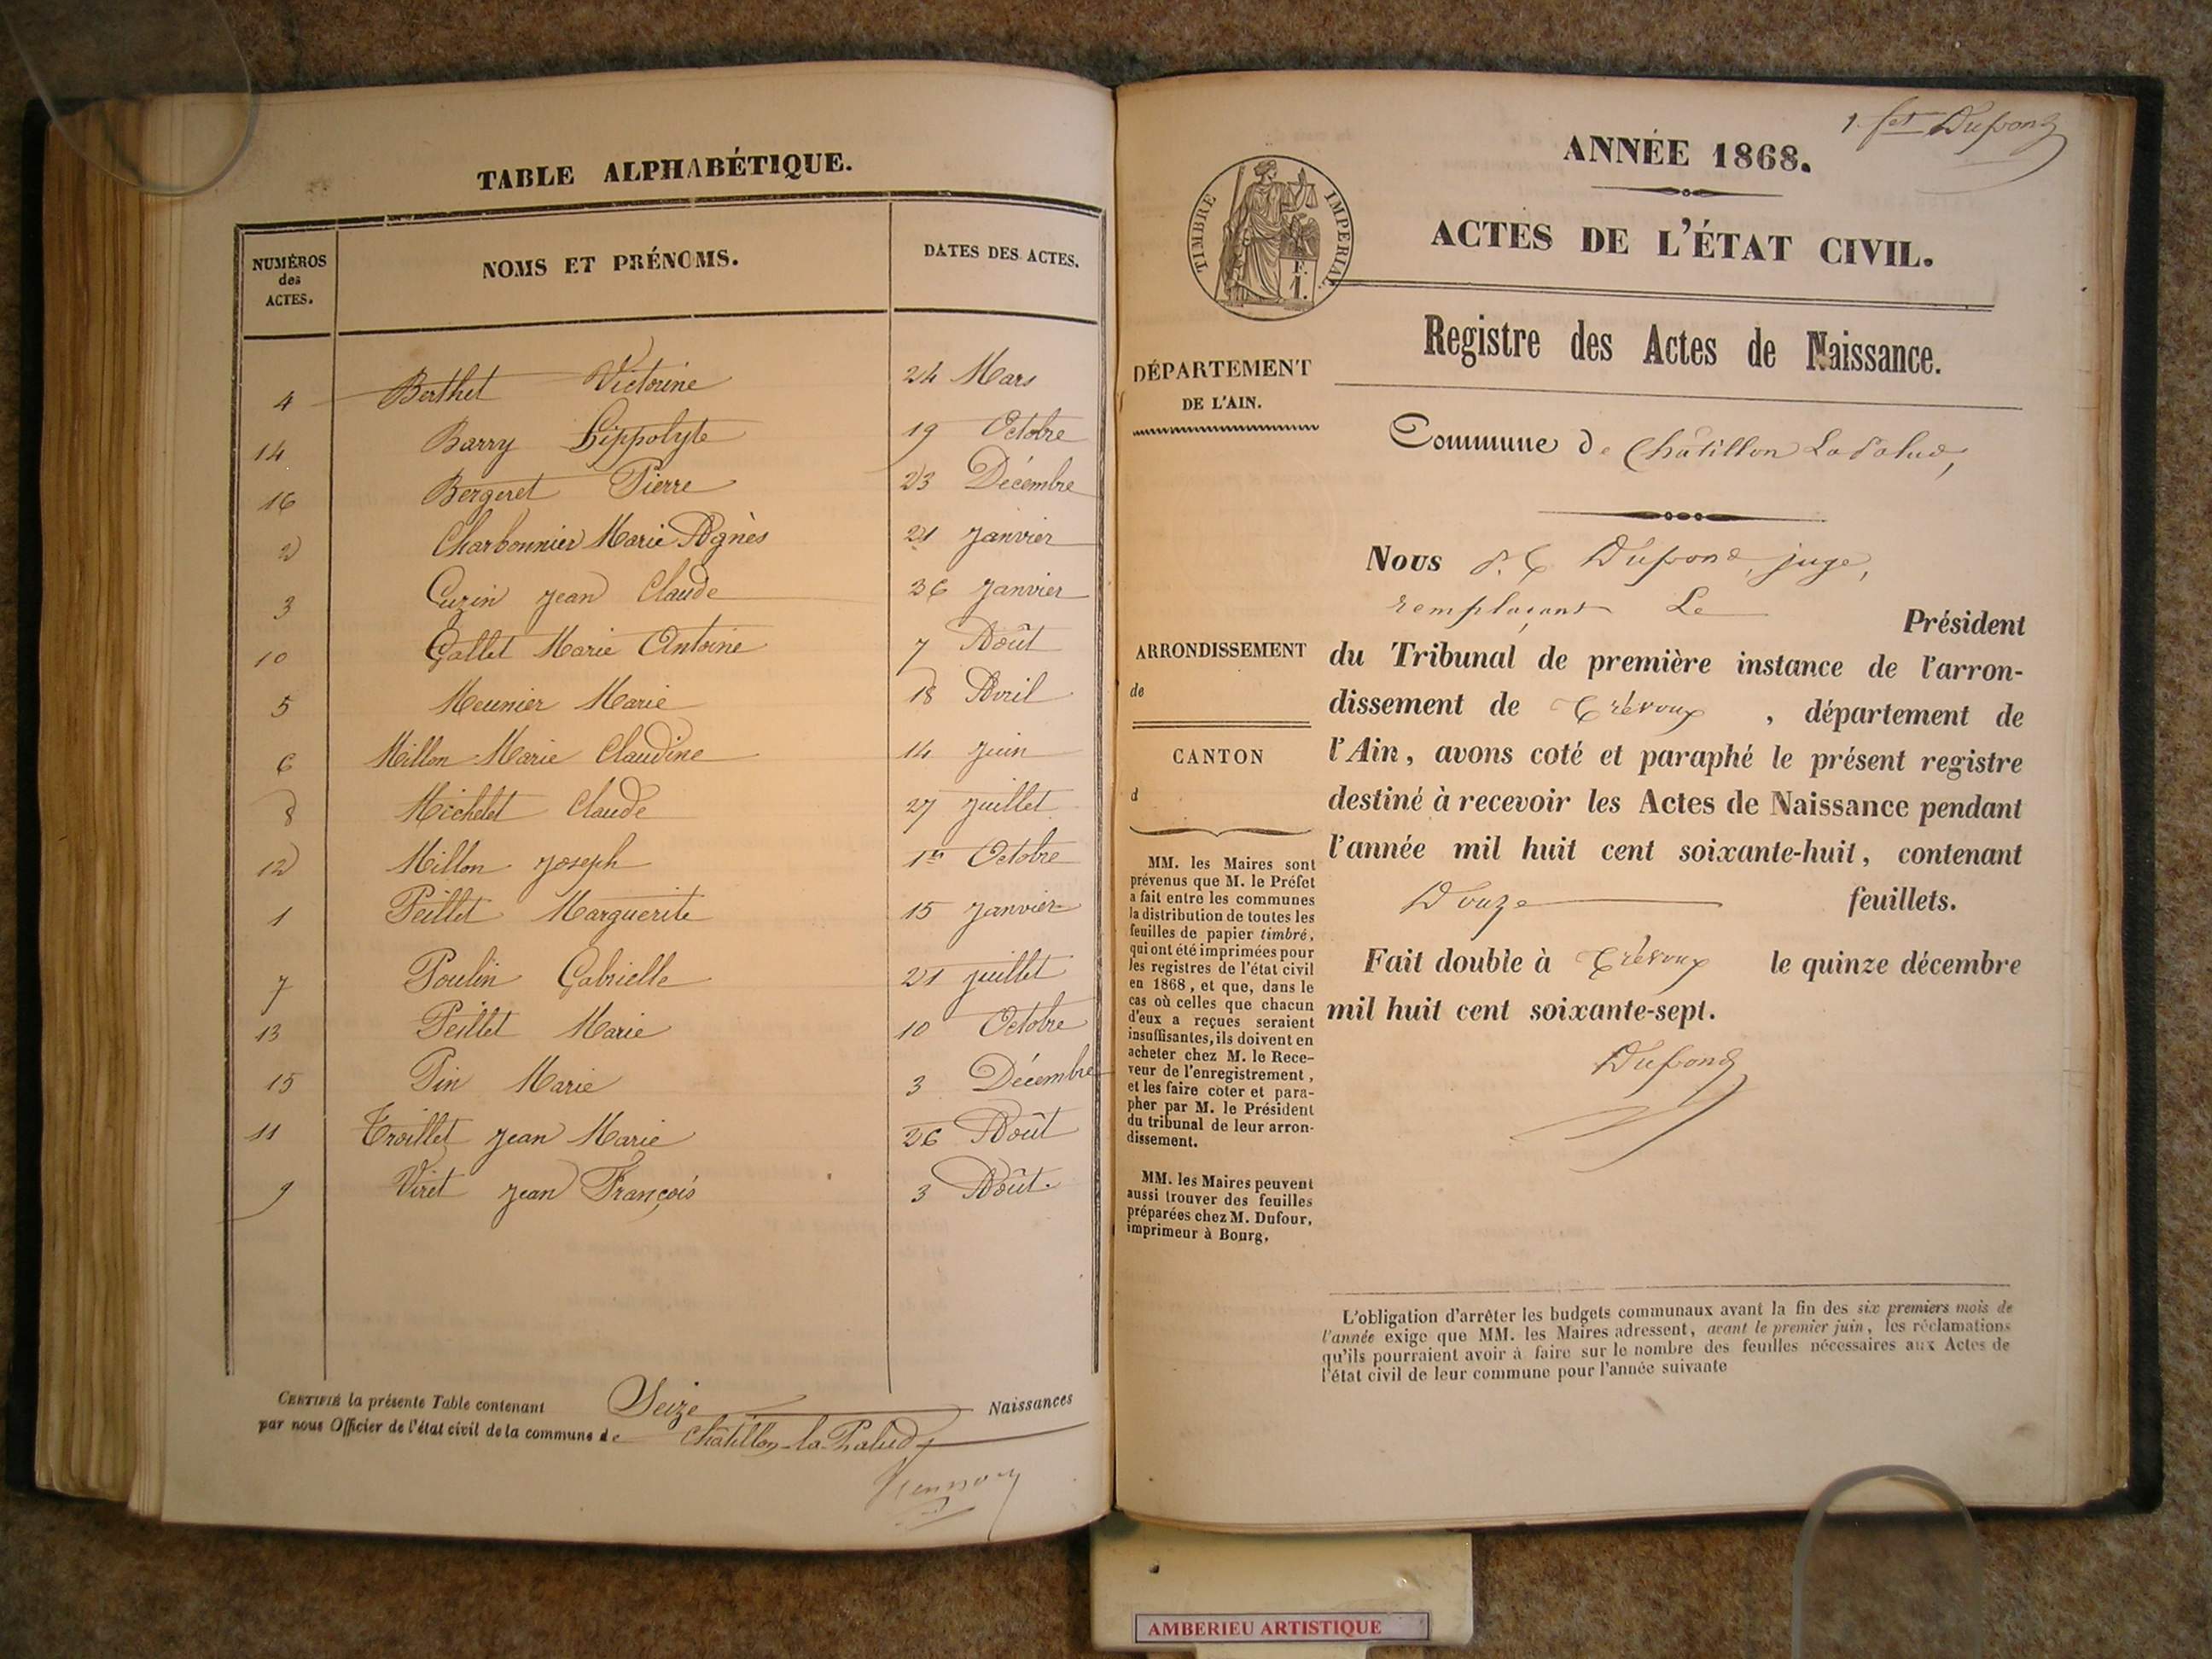 TABLE ALPHABÉTIQUE.
NUMÉROS
des
ACTES.
NOMS ET PRÉNOMS.
DATES DES ACTES.
4 Berthet Victorine 24 Mars
14 Barry Hippolyte 19 Octobre
16 Bergeret Pierre 23 Décembre
2 Charbonnier Marie Agnès 21 Janvier
3 Cuzin Jean Claude 26 Janvier
10 Gallet Marie Antoine 7 Août
5 Meunier Marie 18 Avril
6 Millon Marie Claudine 14 Juin
8 Michelet Claude 27 Juillet
12 Millon Joseph 1er Octobre
1 Peillet Marguerite 15 Janvier
7 Poulin Gabrielle 21 Juillet
13 Peillet Marie 10 Octobre
15 Pin Marie 3 Décembre
11 Troillet Jean Marie 26 Août
9 Viret Jean François 3 Août.
CERTIFIÉ la présente Table contenant Seize Naissances
par nous Officier de l'état civil de la commune de Châtillon-la-Palud
1. fet Dufond
ANNÉE 1868.
TIMBRE IMPERIAL.
F.
1.
ACTES DE L'ÉTAT CIVIL.
Registre des Actes de Naissance.
DÉPARTEMENT
DE L'AIN.
Commune de Châtillon La Palud,
Nous Dufond, juge,
remplaçant Le Président
ARRONDISSEMENT
de
CANTON
d
du Tribunal de première instance de l'arron-
dissement de Trévoux, département de
l'Ain, avons coté et paraphé le présent registre
destiné à recevoir les Actes de Naissance pendant
l'année mil huit cent soixante-huit, contenant
Douze feuillets.
Fait double à Trévoux le quinze décembre
mil huit cent soixante-sept.
Dufond
MM. les Maires sont
prévenus que M. le Préfet
a fait entre les communes
la distribution de toutes les
feuilles de papier timbré,
qui ont été imprimées pour
les registres de l'état civil
en 1868, et que, dans le
cas où celles que chacun
d'eux a reçues seraient
insuffisantes, ils doivent en
acheter chez M. le Rece-
veur de l'enregistrement,
et les faire coter et para-
pher par M. le Président
du tribunal de leur arron-
dissement.
MM. les Maires peuvent
aussi trouver des feuilles
préparées chez M. Dufour,
imprimeur à Bourg.
L'obligation d'arrêter les budgets communaux avant la fin des six premiers mois de
l'année exige que MM. les Maires adressent, avant le premier juin, les réclamations
qu'ils pourraient avoir à faire sur le nombre des feuilles nécessaires aux Actes de
l'état civil de leur commune pour l'année suivante
AMBERIEU ARTISTIQUE